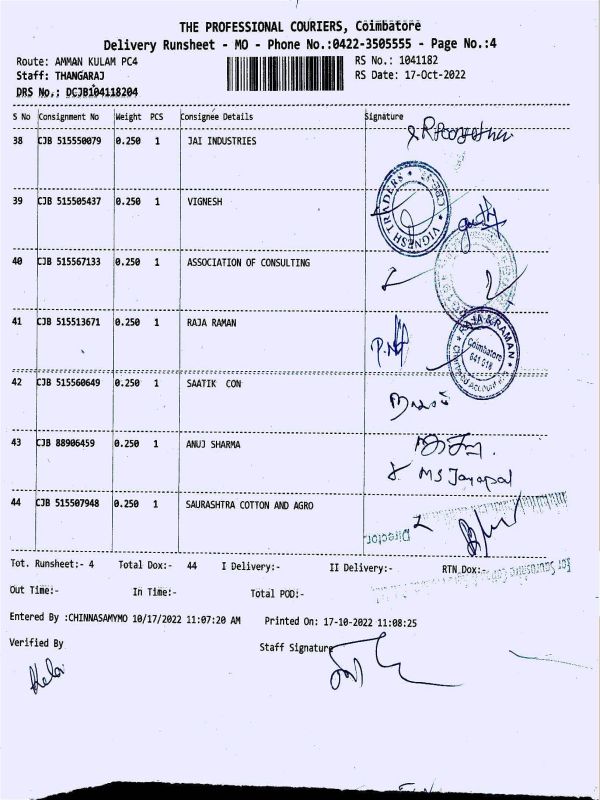 THE PROFESSIONAL COURIERS, Coimbatore
Delivery Runsheet - MO - Phone No.:0422-3505555 - Page No.:4
Route: AMMAN KULAM PC4 RS No.: 1041182
Staff: THANGARAJ RS Date: 17-Oct-2022
DRS No.: DCJB104118204
S No Consignment No Weight PCS Consignee Details Signature
38 CJB 515550079 0.250 1 JAI INDUSTRIES
39 CJB 515505437 0.250 1 VIGNESH
VIGNESH TRADERS
40 CJB 515567133 0.250 1 ASSOCIATION OF CONSULTING
41 CJB 515513671 0.250 1 RAJA RAMAN
RAJA & RAMAN
Coimbatore
641 018
42 CJB 515560649 0.250 1 SAATIK CON
43 CJB 88906459 0.250 1 ANUJ SHARMA
MS Jayapal
44 CJB 515507948 0.250 1 SAURASHTRA COTTON AND AGRO
Director
Tot. Runsheet:- 4 Total Dox:- 44 I Delivery:- II Delivery:- RTN Dox:-
Out Time:- In Time:- Total POD:-
Entered By :CHINNASAMYMO 10/17/2022 11:07:20 AM Printed On: 17-10-2022 11:08:25
Verified By Staff Signature